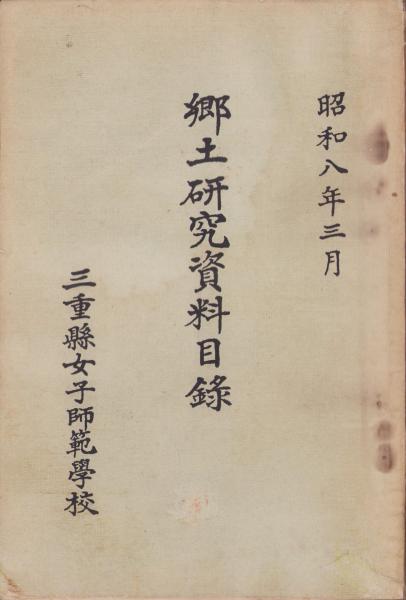 昭和八年三月
郷土研究資料目錄
三重縣女子師範學校